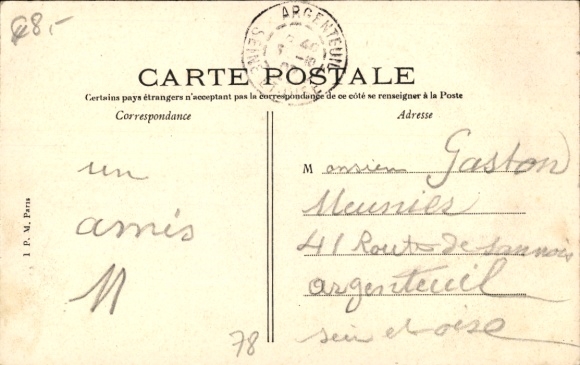 €8,-
ARGENTEUIL
CARTE POSTALE
Certains pays étrangers n'acceptant pas la correspondance de ce côté se renseigner à la Poste
Correspondance
Adresse
un
amis
M
Monsieur Gaston
Meunier
41 Route de sannois
argenteuil
sein et oise
78
1 P. M. Paris